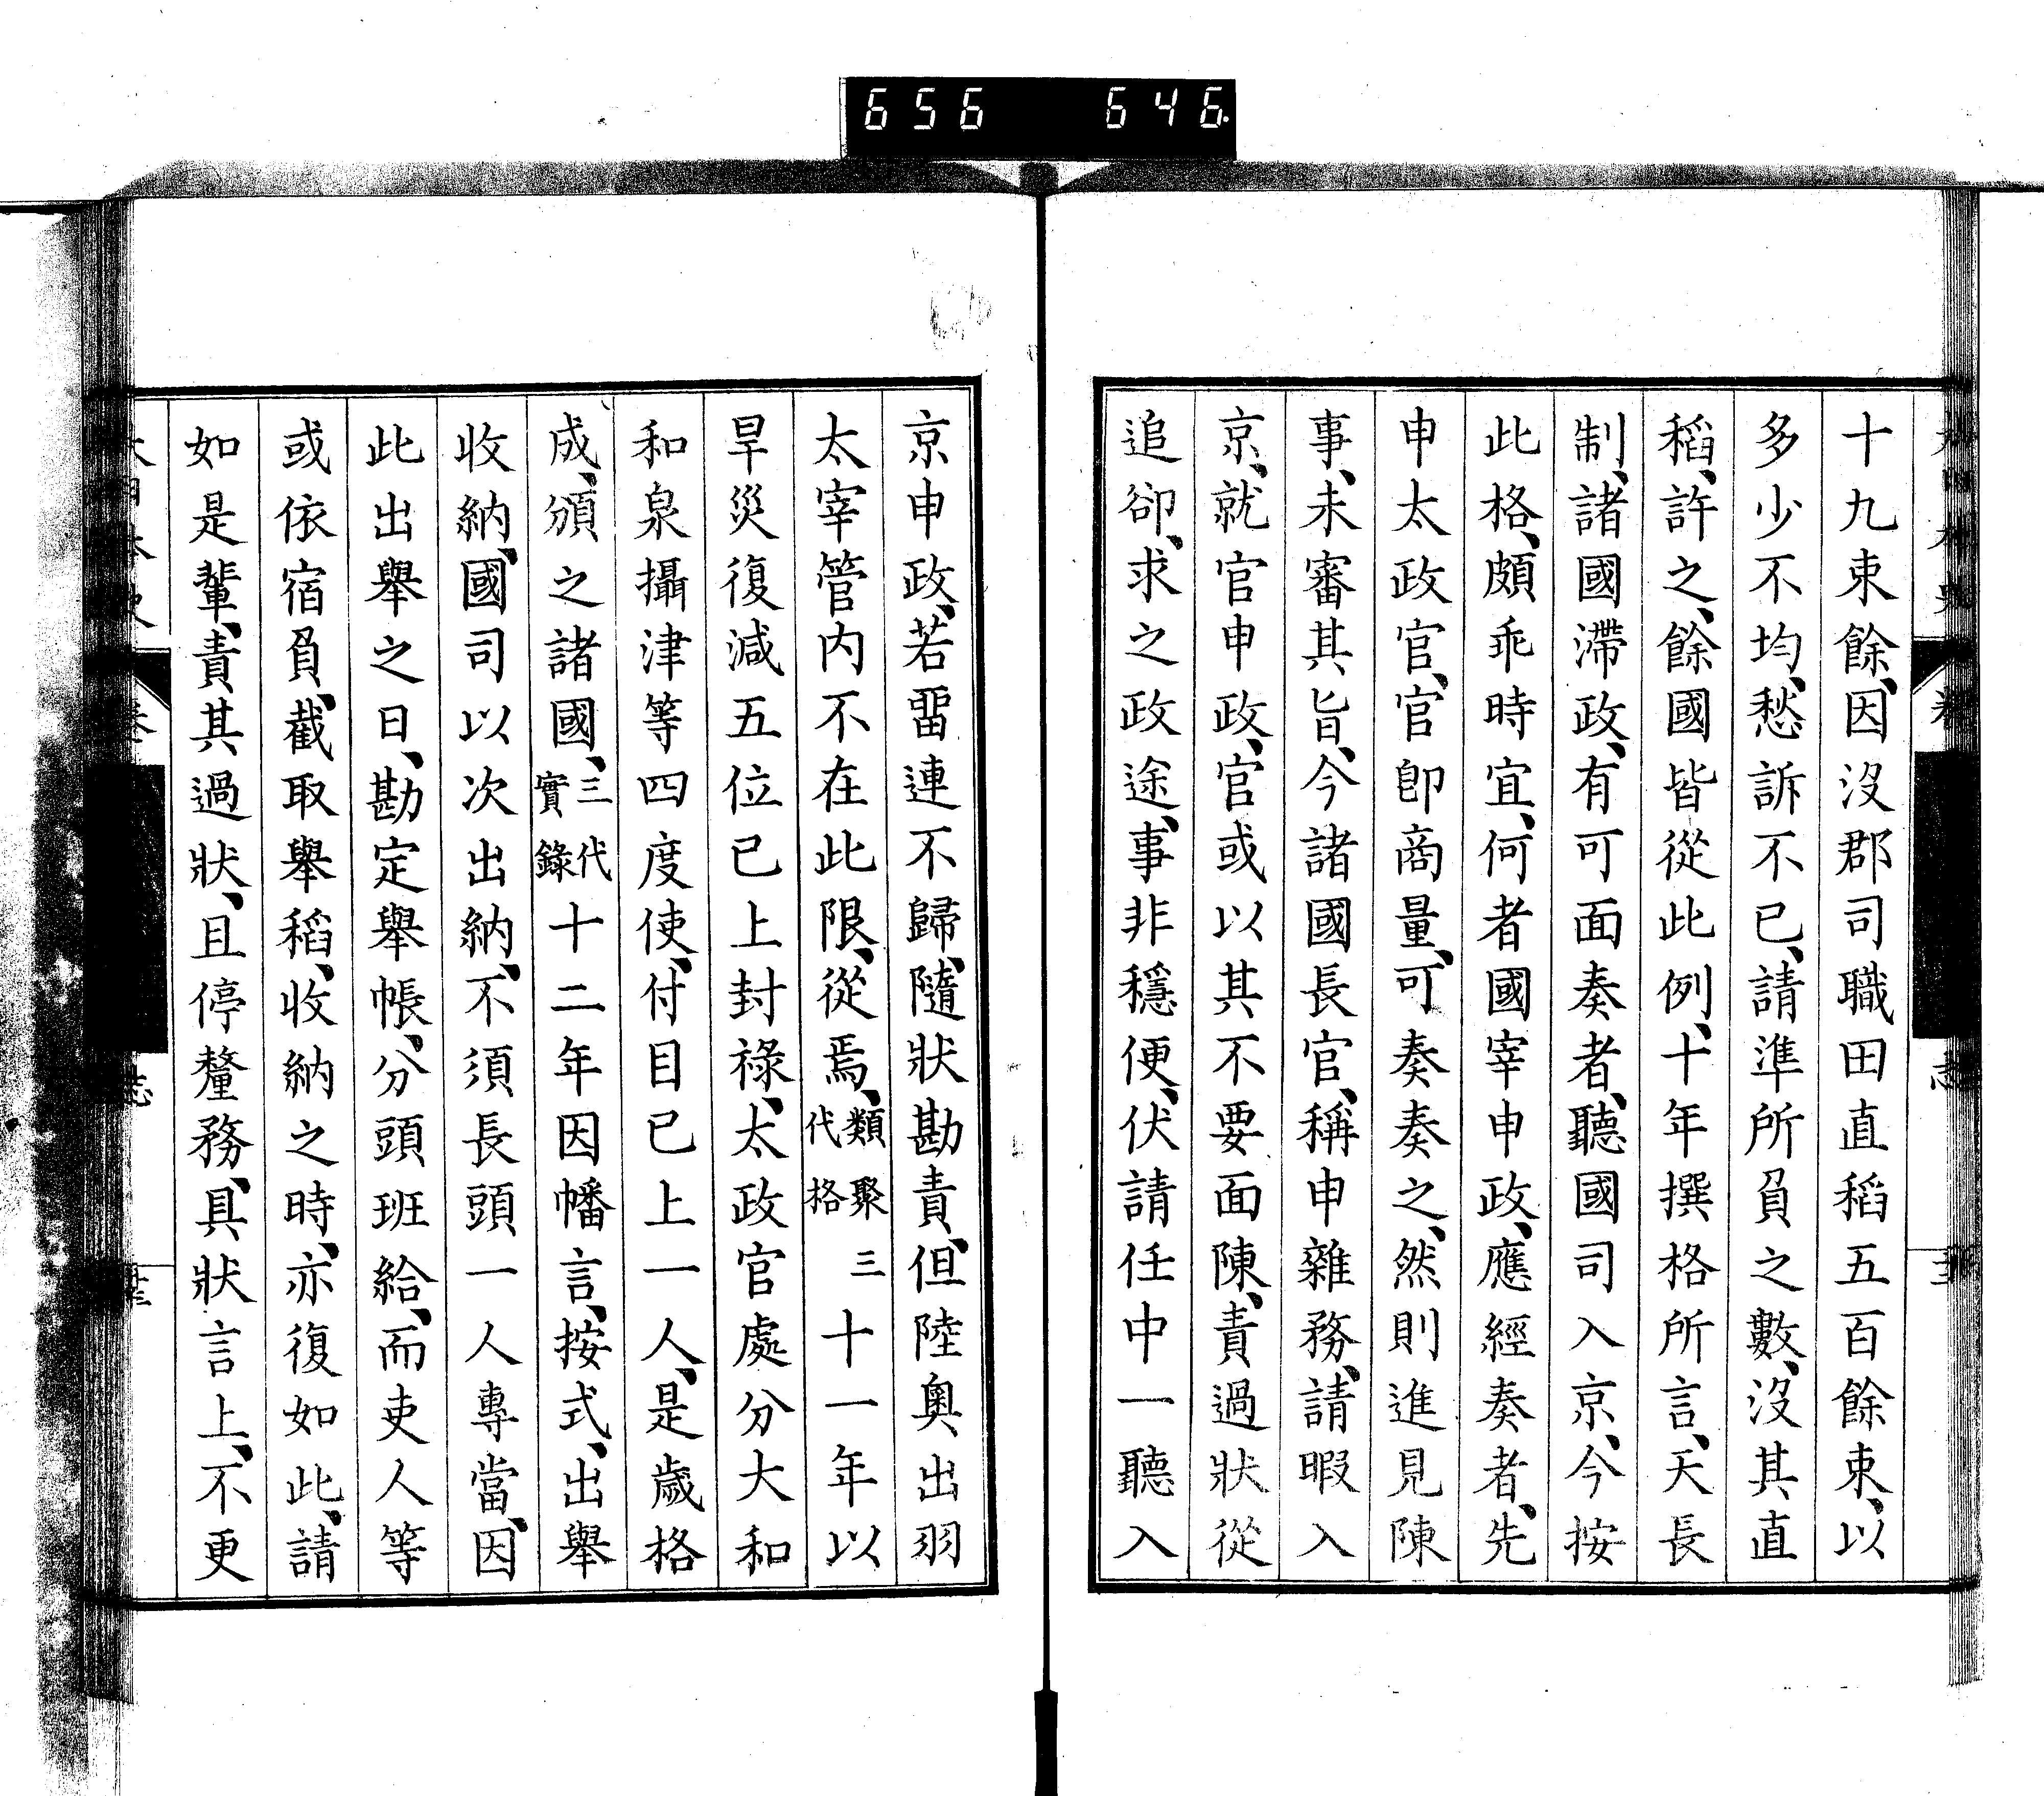 656 646.
十九束餘、因沒郡司職田直稻五百餘束、以
多少不均、愁訴不已、請準所負之數、沒其直
稻、許之、餘國皆從此例、十年撰格所言、天長
制、諸國滯政、有可面奏者、聽國司入京、今按
此格、頗乖時宜、何者國宰申政、應經奏者、先
申太政官、官卽商量、可奏奏之、然則進見陳
事、未審其旨、今諸國長官、稱申雜務、請暇入
京、就官申政、官或以其不要面陳、責過狀從
追卻、求之政途、事非穩便、伏請任中一聽入
京申政、若畱連不歸、隨狀勘責、但陸奧出羽
太宰管內不在此限、從焉、類聚三代格 十一年以
旱災復減五位已上封祿、太政官處分大和
和泉攝津等四度使、付目已上一人、是歲格
成、頒之諸國、三代實錄十二年因幡言、按式、出舉
收納、國司以次出納、不須長頭一人專當、因
此出舉之日、勘定舉帳、分頭班給、而吏人等
或依宿負、截取舉稻、收納之時、亦復如此、請
如是輩、責其過狀、且停釐務、具狀言上、不更